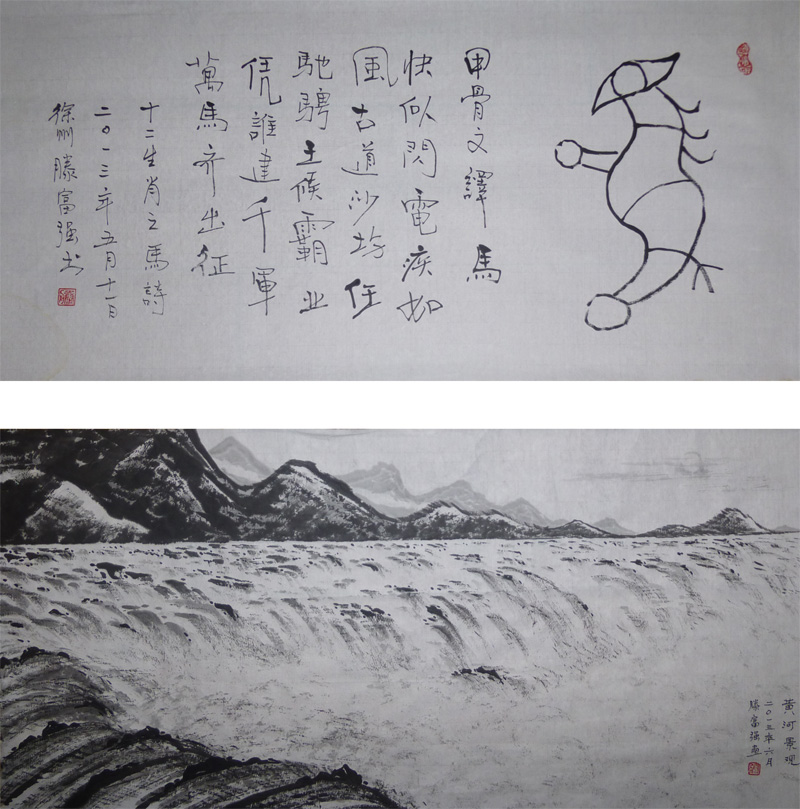 甲骨文譯 馬
快似閃電疾如
風古道沙场任
馳騁王候霸业
凭誰建千軍
萬馬齐出征
十二生肖之馬詩
二〇一三年五月十一日
徐州滕富强书
黄河景观
二〇一三年六月
滕富强画